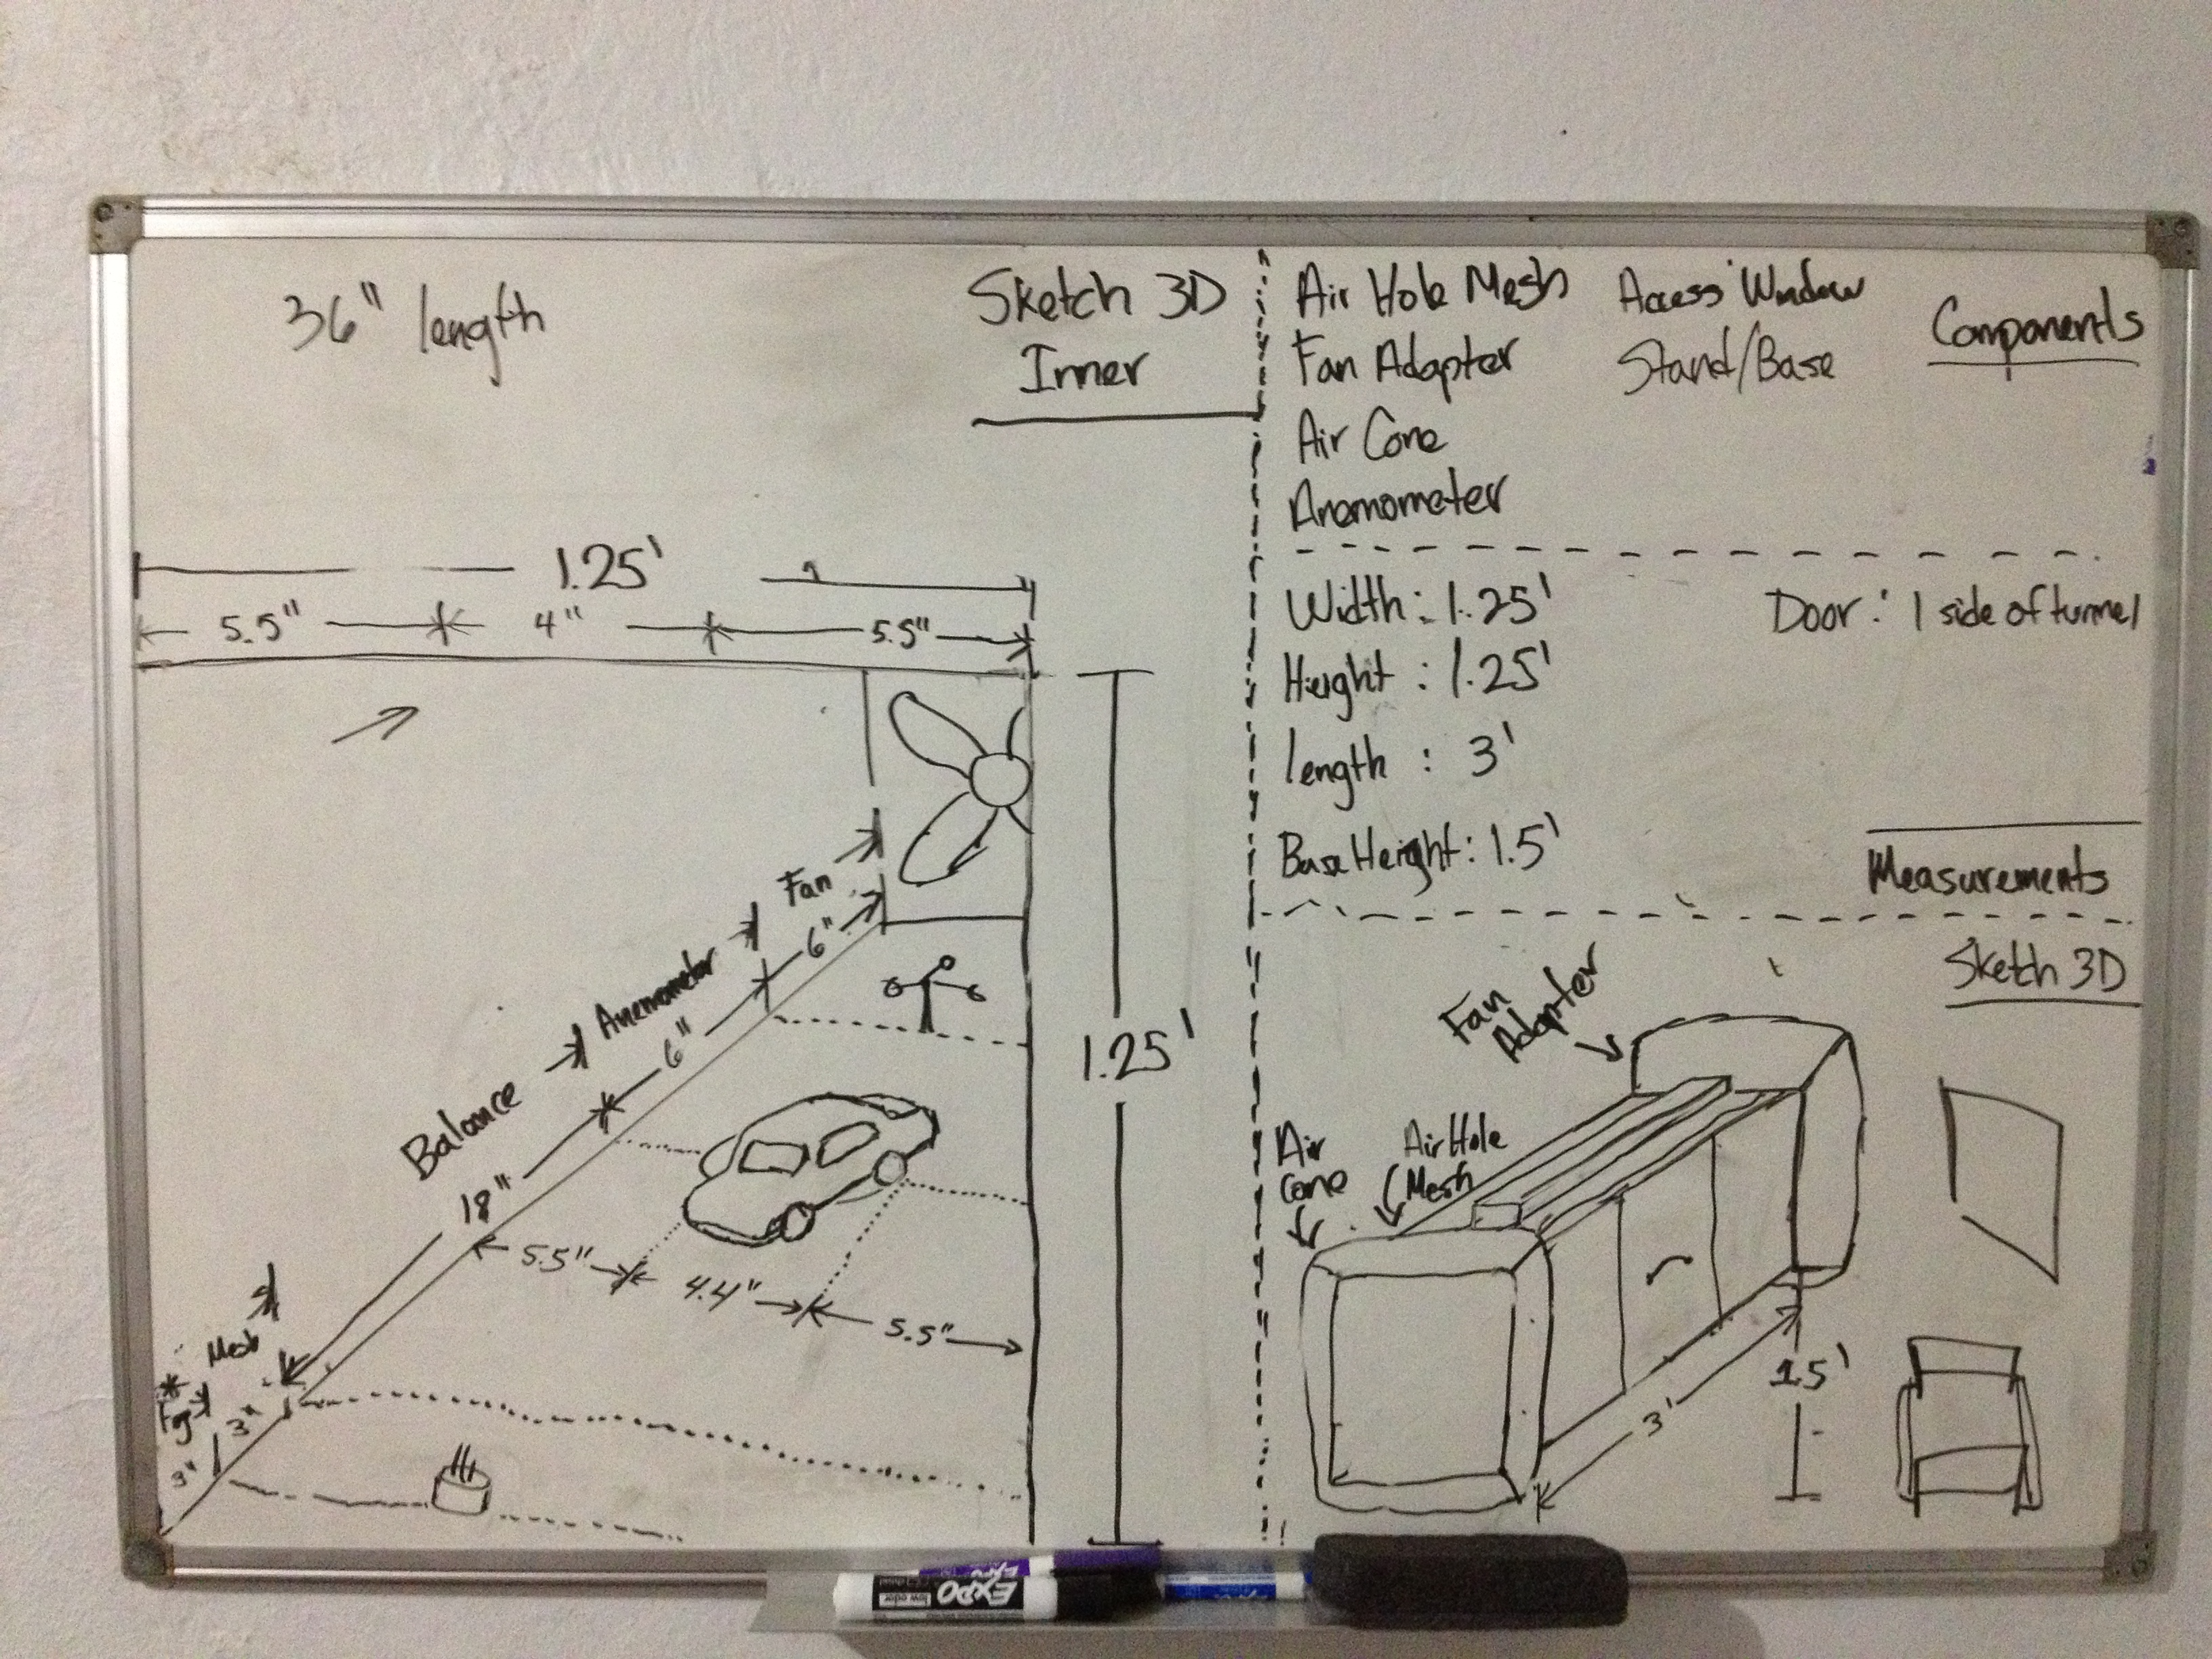 36" length
Sketch 3D
Inner
1.25'
5.5" 4" 5.5"
1.25'
Fan
6"
Anemometer
6"
Balance
18"
5.5" 4.4" 5.5"
Mesh
3"
Fog
3"
Components
Air Hole Mesh
Fan Adapter
Air Cone
Anemometer
Access Window
Stand/Base
Width: 1.25'
Height: 1.25'
length: 3'
Base Height: 1.5'
Door: 1 side of tunnel
Measurements
Sketch 3D
Fan
Adapter
Air
Cone
Air Hole
Mesh
3'
1.5'
EXPO
low odor